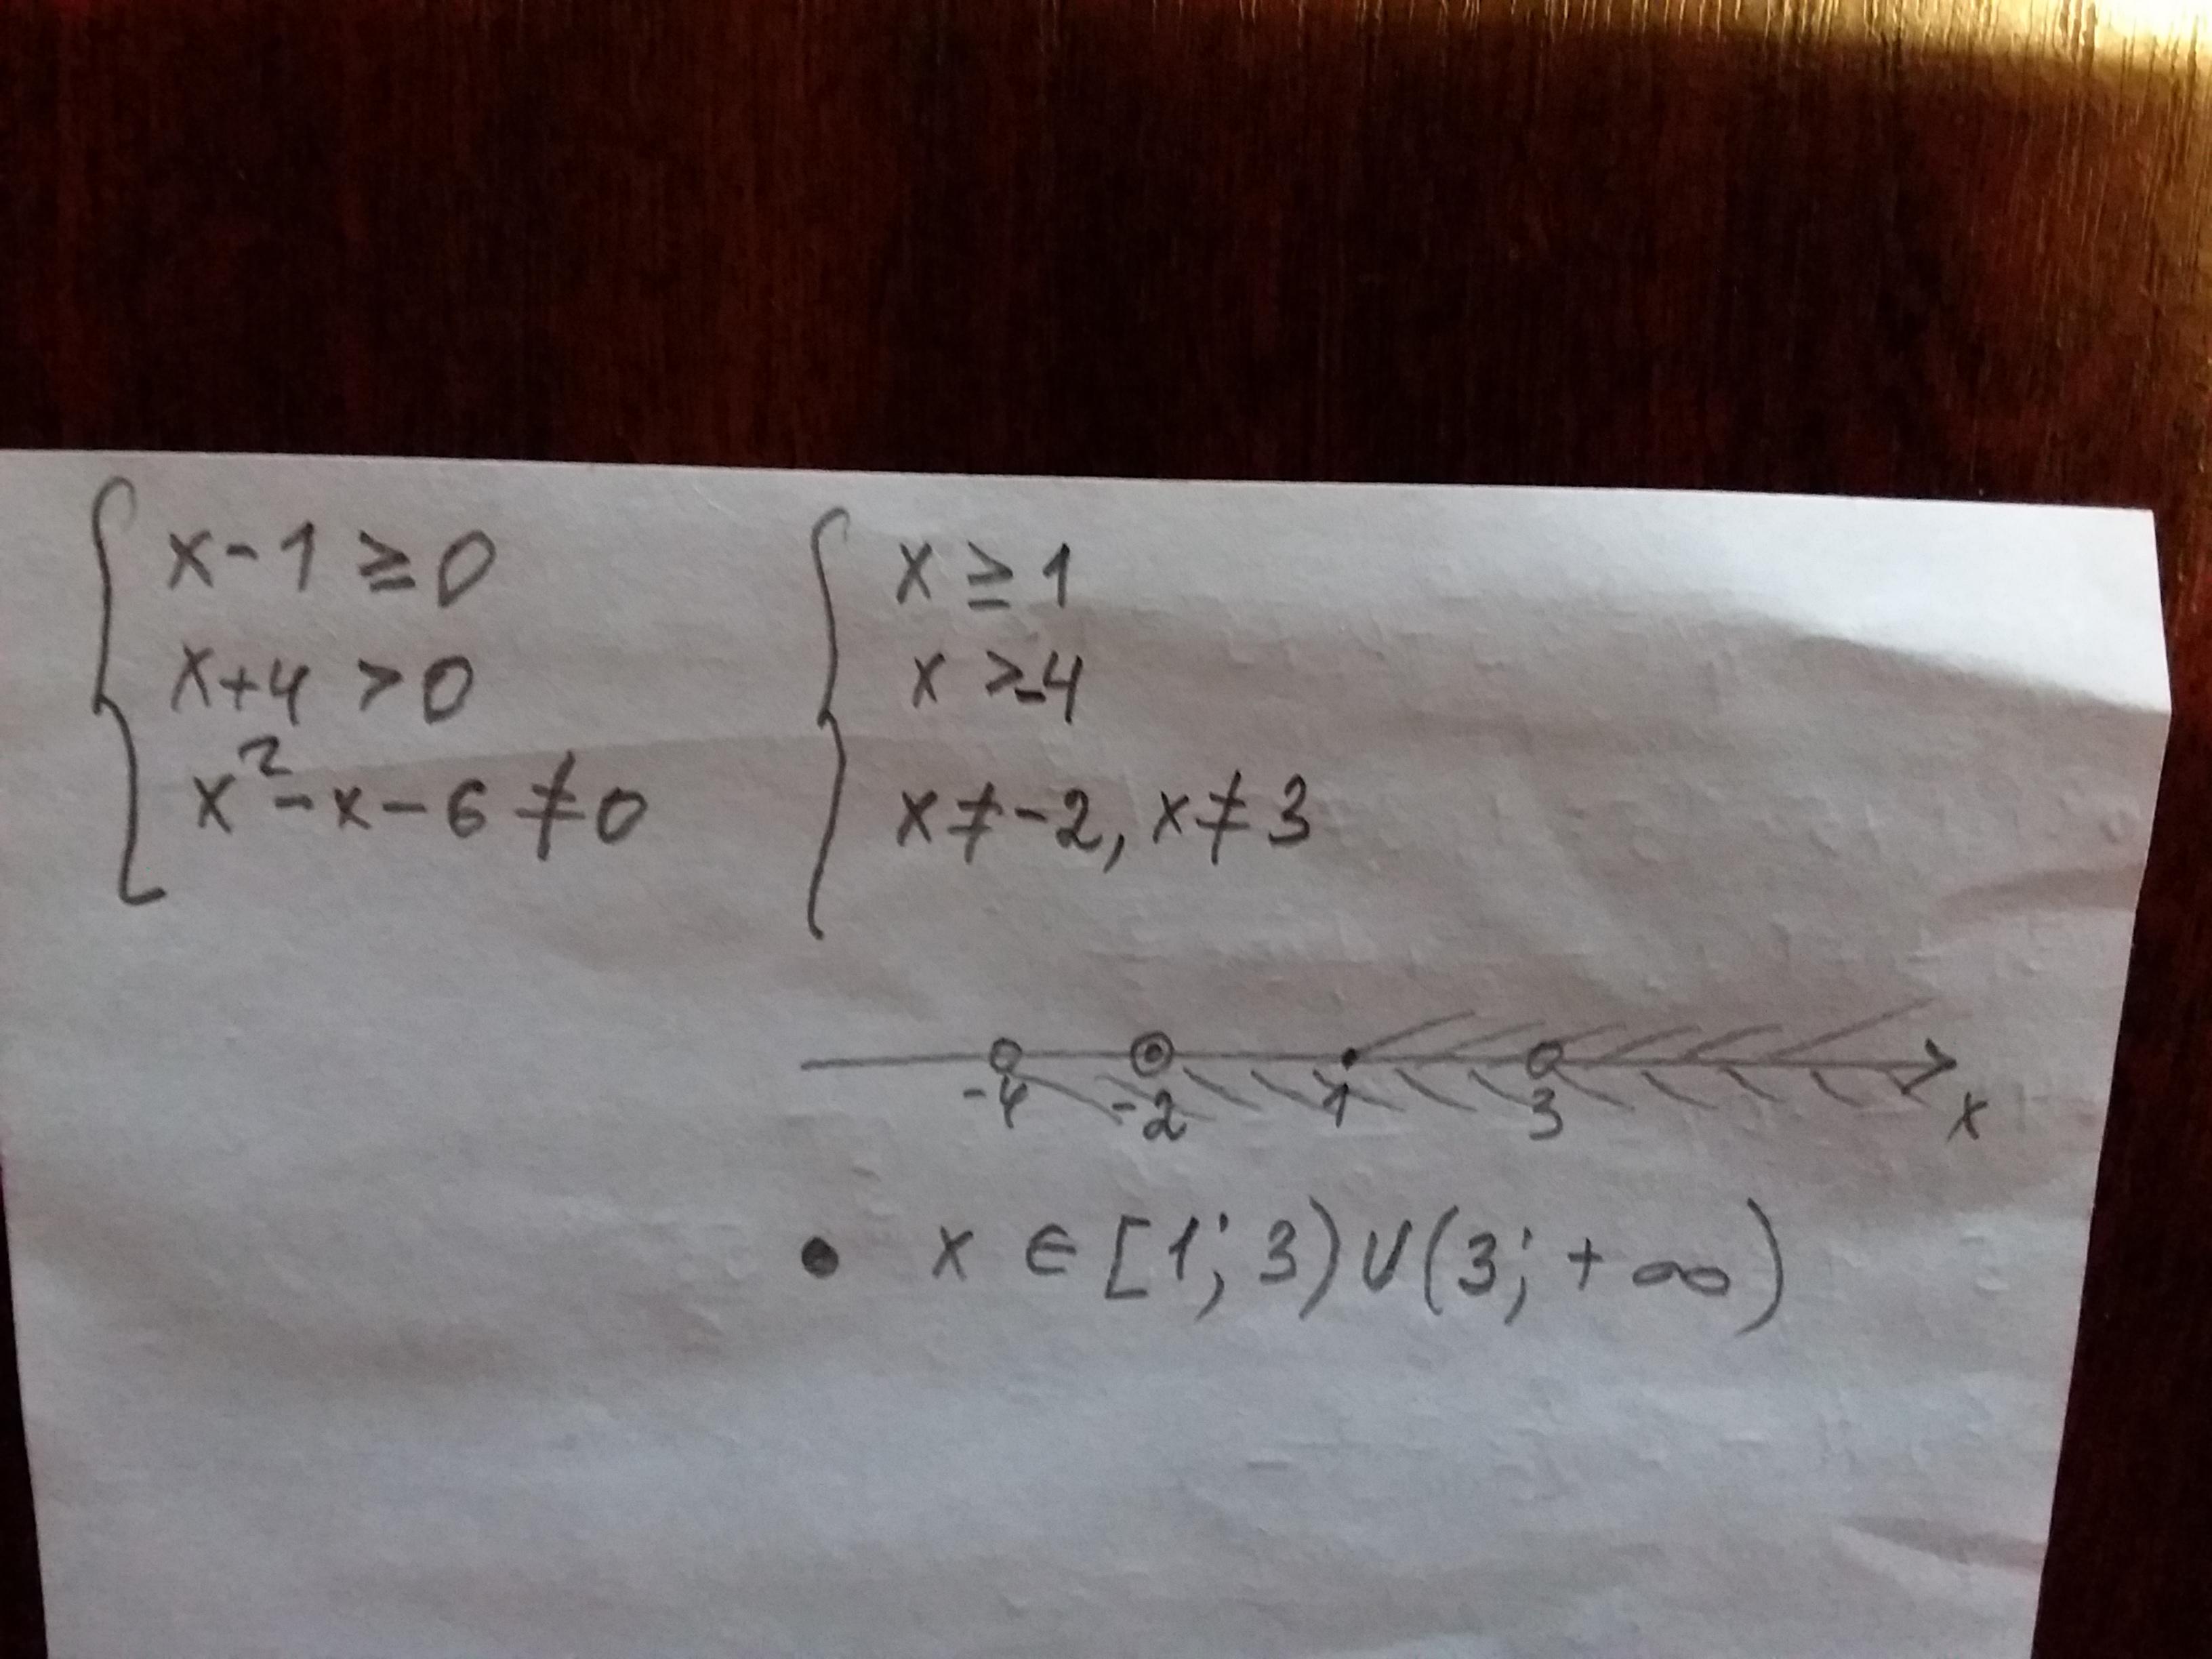 x-1≥0
x+4>0
x²-x-6≠0
x≥1
x>-4
x≠-2, x≠3
-4 -2 1 3 x
• x ∈ [1; 3) ∪ (3; +∞)